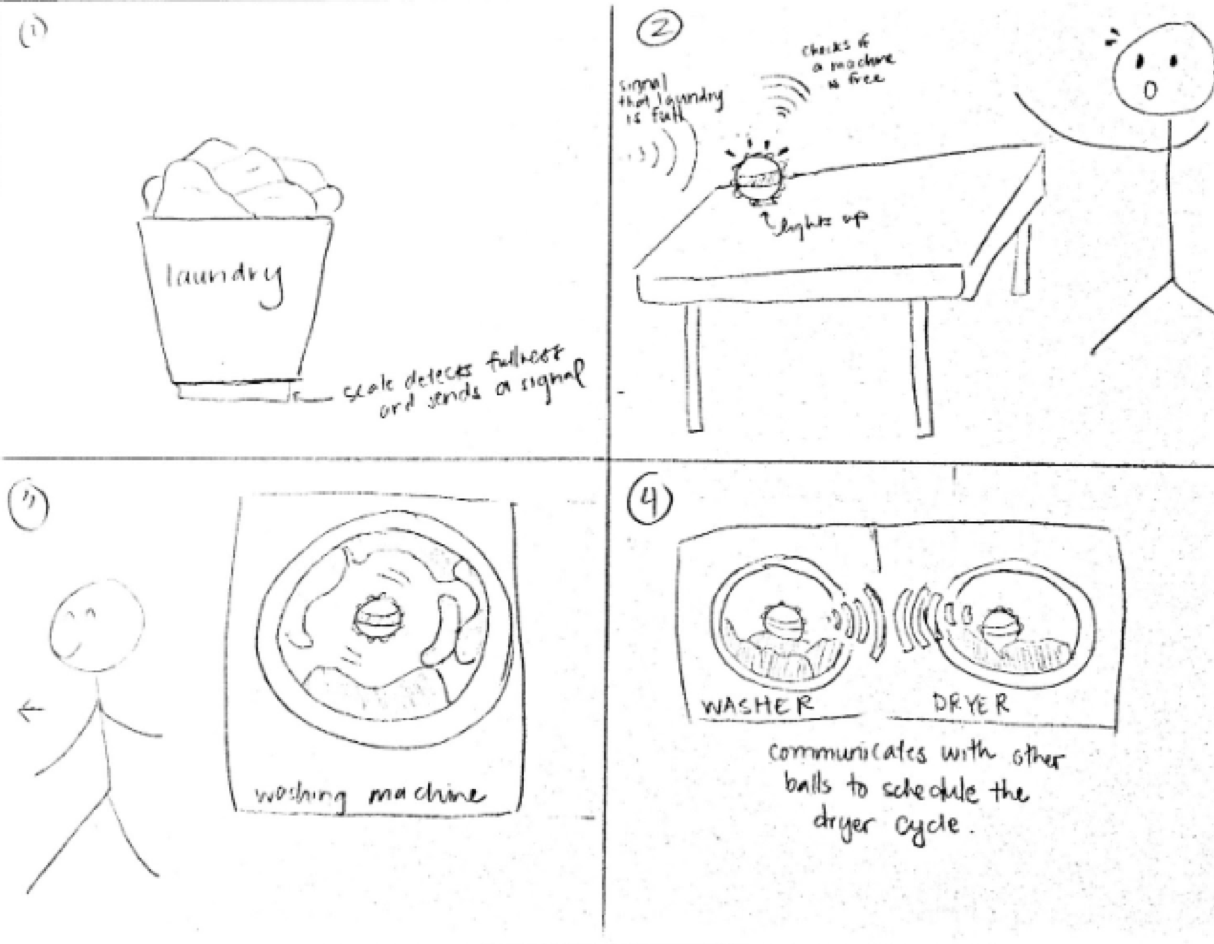 1
laundry
scale detects fullness
and sends a signal
2
signal
that laundry
is full
checks if
a machine
is free
lights up
3
washing machine
4
WASHER
DRYER
communicates with other
balls to schedule the
dryer cycle.